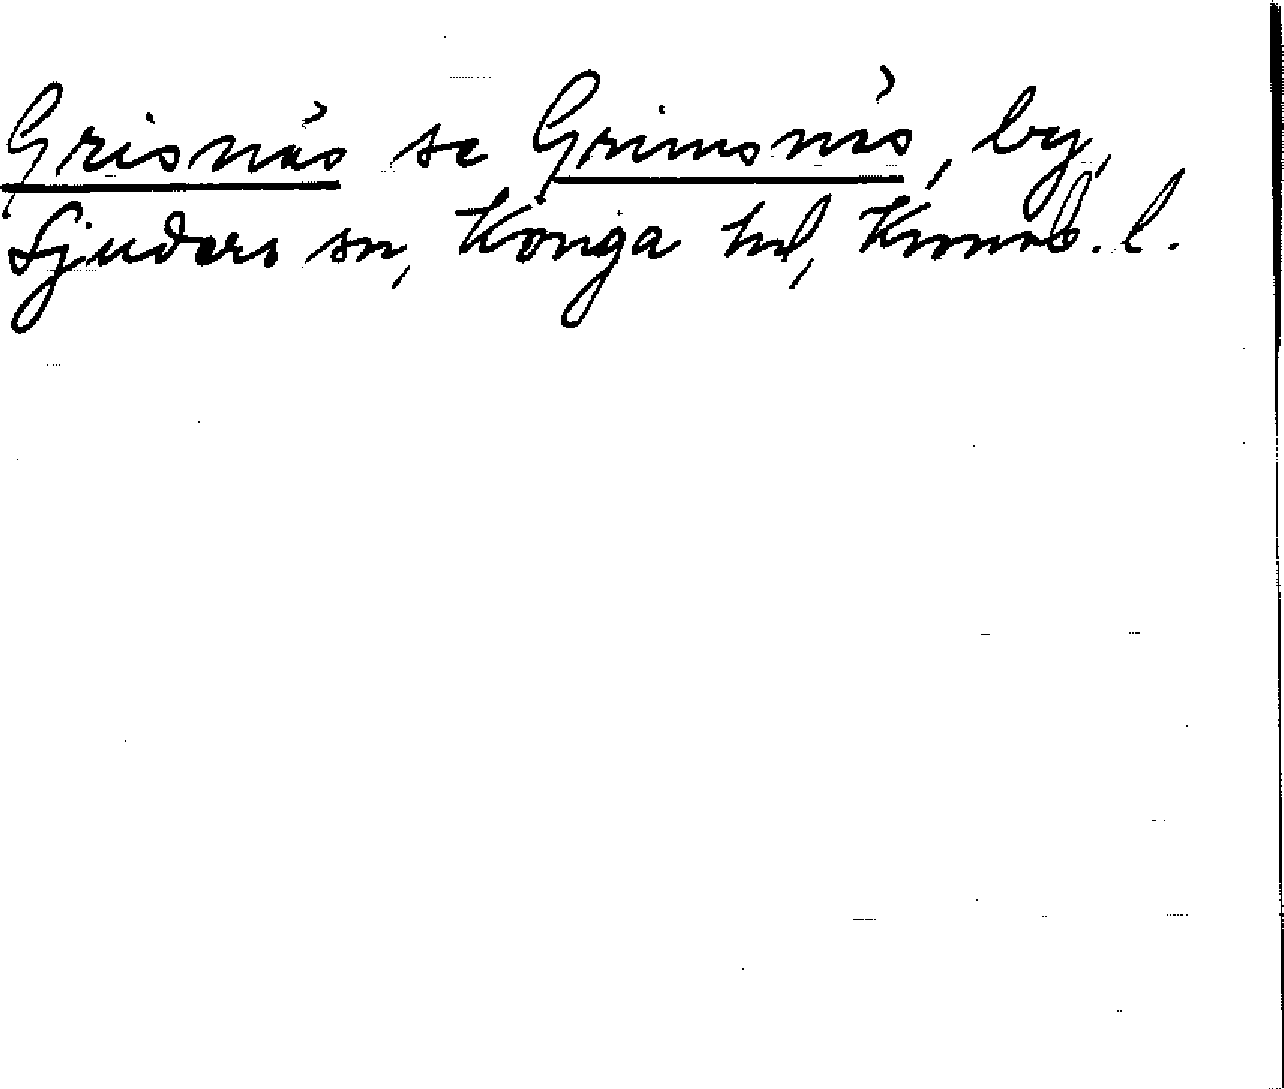 Grisnäs se Grimsnäs, by,
Ljuders sn, Konga hd, Kronob. l.